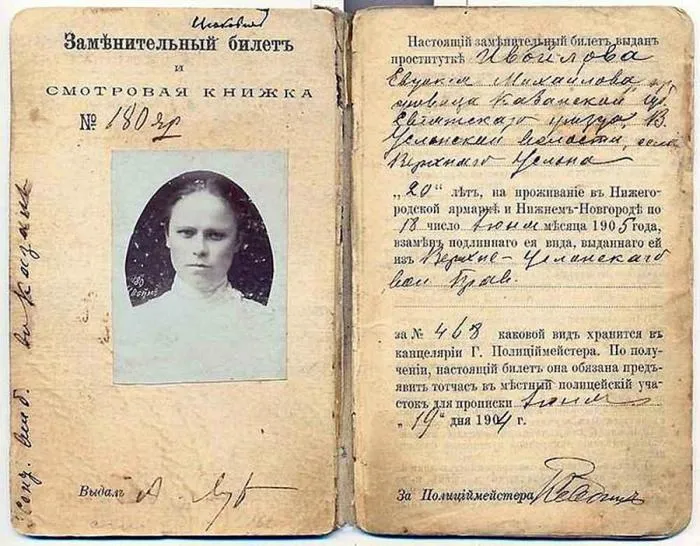 Замѣнительный билетъ
и
СМОТРОВАЯ КНИЖКА
№ 180 яр
Выдалъ
Настоящій замѣнительный билетъ выданъ
проституткѣ Ивойлова
Евдокія Михайлова, кр
Казанской гу.
Свіяжскаго уѣзда, В.
Услонской волости, села
Верхняго Услона
„20" лѣтъ, на проживаніе въ Нижего-
родской ярмаркѣ и Нижнемъ-Новгородѣ по
18 число Іюня мѣсяца 1905 года,
взамѣнъ подлиннаго ея вида, выданнаго ей
изъ Верхне-Услонскаго
вол Прав.
за № 468 каковой видъ хранится въ
канцеляріи Г. Полиціймейстера. По полу-
ченіи, настоящій билетъ она обязана предъ-
явить тотчасъ въ мѣстный полицейскій уча-
стокъ для прописки Іюня
„19" дня 1904 г.
За Полиціймейстера